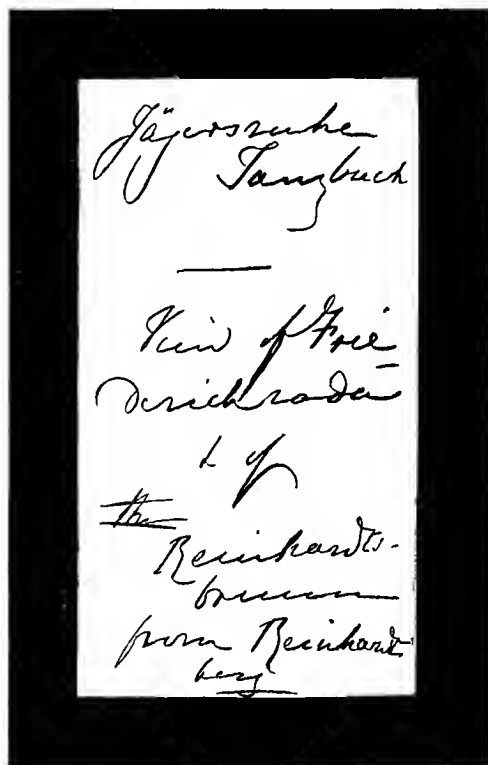 Jägersruhe
Tanzbuch
View of Frie
derichroda
& of
the
Reinhards-
brunn
from Reinhardts
berg